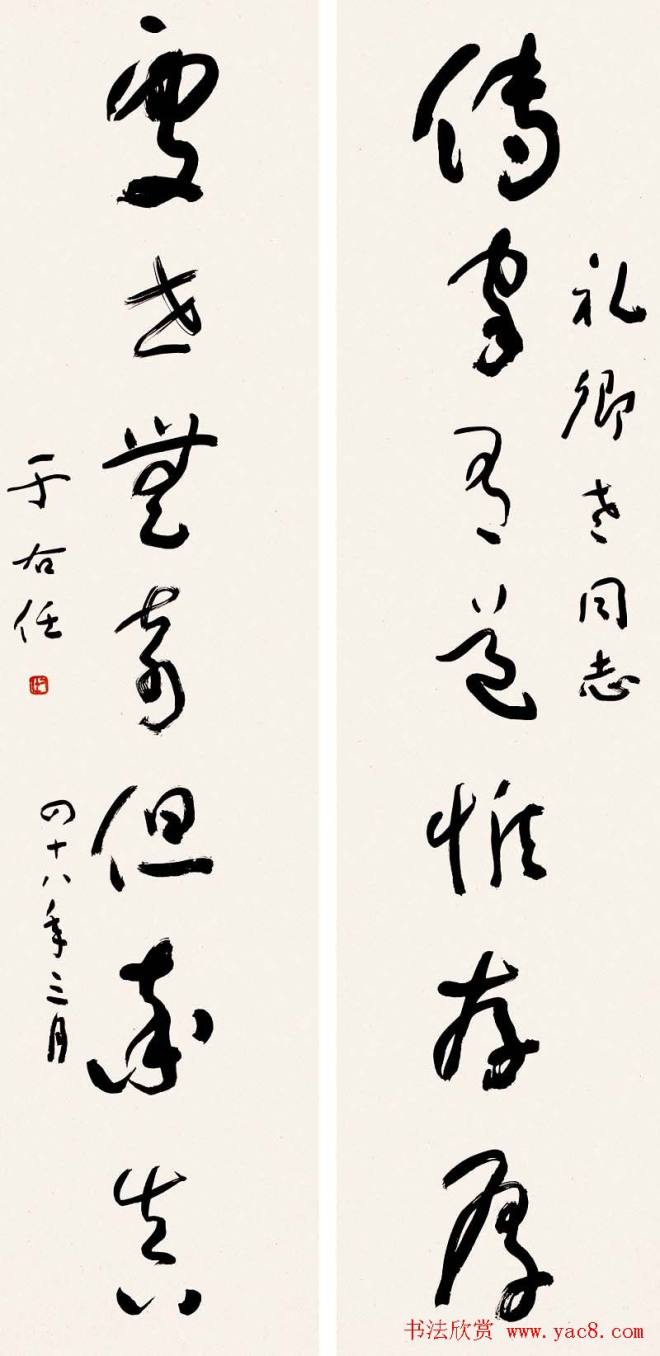 礼卿老同志
傳家有道惟存厚
處世無奇但率真
于右任
四十八年三月
书法欣赏 www.yac8.com